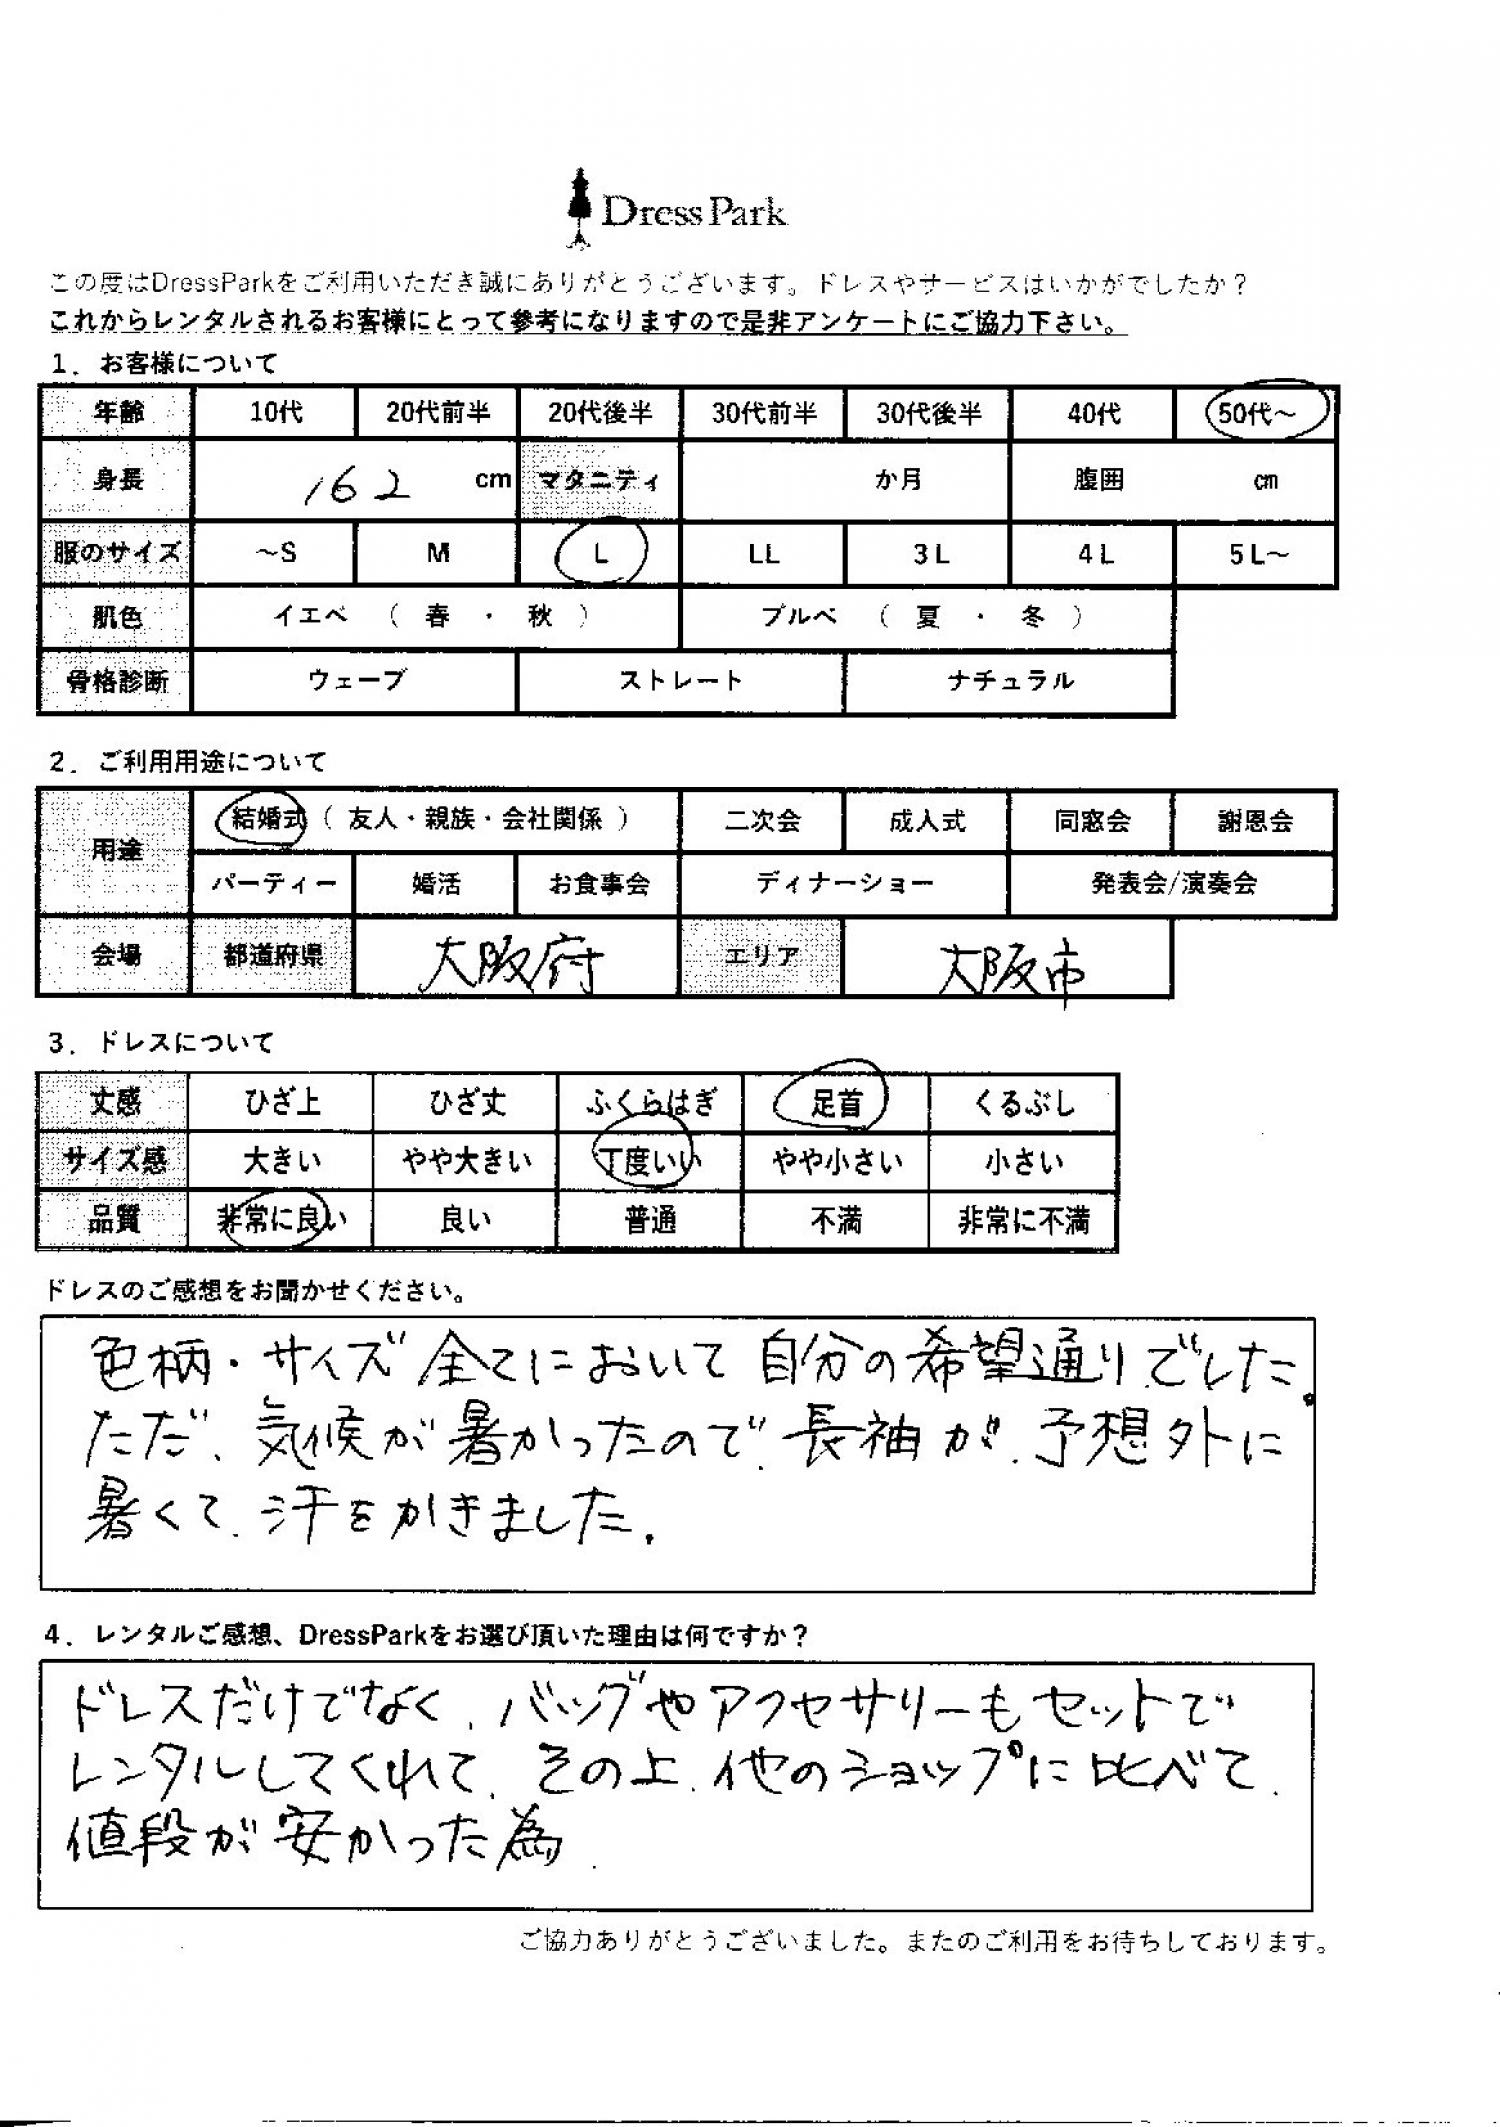 Dress Park
この度はDressParkをご利用いただき誠にありがとうございます。ドレスやサービスはいかがでしたか？
これからレンタルされるお客様にとって参考になりますので是非アンケートにご協力下さい。
1．お客様について
年齢 10代 20代前半 20代後半 30代前半 30代後半 40代 50代～
身長 162 cm マタニティ か月 腹囲 cm
服のサイズ ～S M L LL 3L 4L 5L～
肌色 イエベ （ 春 ・ 秋 ） ブルベ （ 夏 ・ 冬 ）
骨格診断 ウェーブ ストレート ナチュラル
2．ご利用用途について
用途 結婚式（ 友人・親族・会社関係 ） 二次会 成人式 同窓会 謝恩会
パーティー 婚活 お食事会 ディナーショー 発表会/演奏会
会場 都道府県 大阪府 エリア 大阪市
3．ドレスについて
丈感 ひざ上 ひざ丈 ふくらはぎ 足首 くるぶし
サイズ感 大きい やや大きい 丁度いい やや小さい 小さい
品質 非常に良い 良い 普通 不満 非常に不満
ドレスのご感想をお聞かせください。
色柄・サイズ全てにおいて自分の希望通りでした。
ただ、気候が暑かったので、長袖が、予想外に
暑くて、汗をかきました。
4．レンタルご感想、DressParkをお選び頂いた理由は何ですか？
ドレスだけでなく、バッグやアクセサリーもセットで
レンタルしてくれて、その上、他のショップに比べて、
値段が安かった為、
ご協力ありがとうございました。またのご利用をお待ちしております。